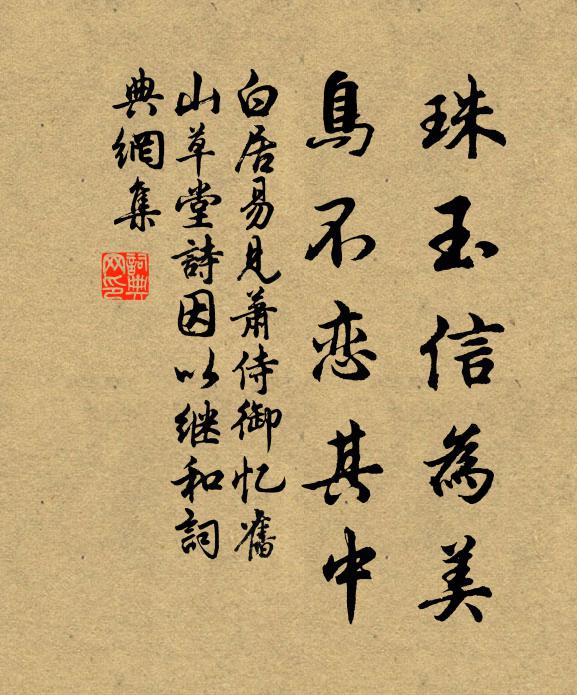 珠玉信為美
鳥不恋其中
白居易見蕭侍御忆舊
山草堂詩因以继和詞
典網集
詞典
网印